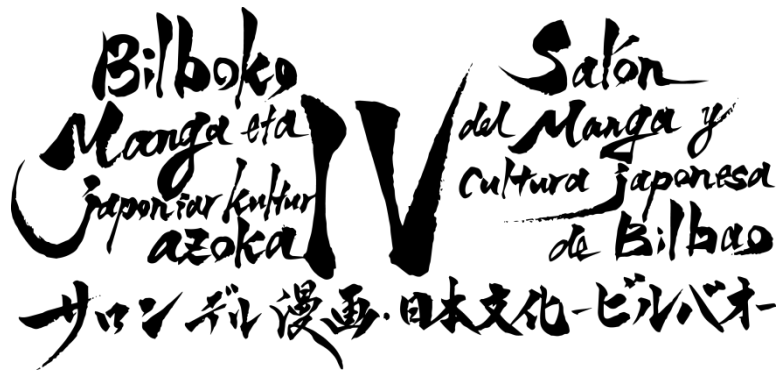 Bilboko
Manga eta
japoniar kultur
azoka
IV
Salón
del Manga y
cultura japonesa
de Bilbao
サロンデル漫画・日本文化-ビルバオ-